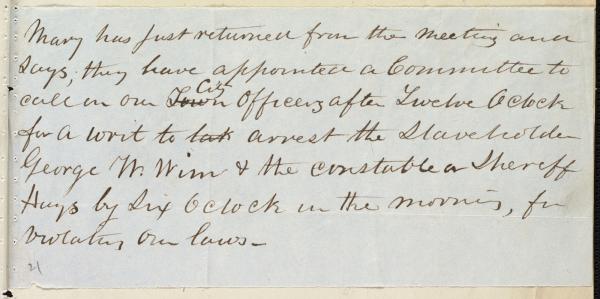 Mary has just returned from the meeting and
says, they have appointed a Committee to
call on our Town City Officers after Twelve Oclock
for a writ to tak arrest the Slaveholder
George W. Winn & the constable or Sheriff
Hays by Six Oclock in the morning, for
violating our laws—
21